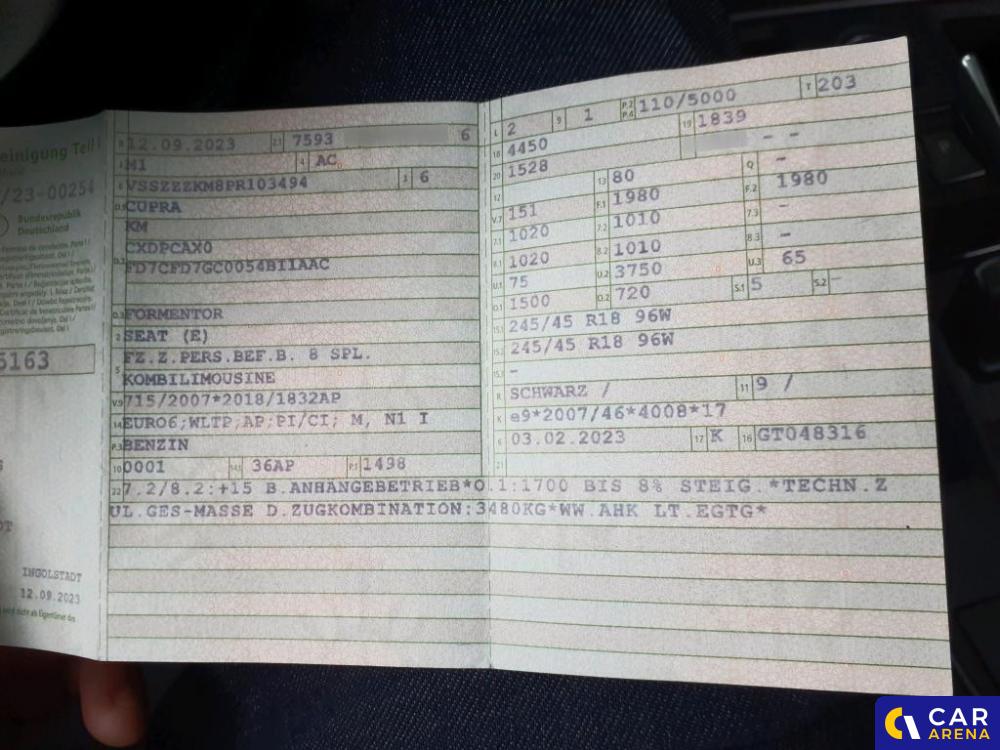 einigung Teil I
/23-00254
Bundesrepublik
Deutschland
5163
INGOLSTADT
12.09.2023
B 12.09.2023 2.1 7593 6
J M1 4 AC
E VSSZZZKM8PR103494 3 6
D.1 CUPRA
KM
D.2 CXDPCAX0
FD7CFD7GC0054BIIAAC
D.3 FORMENTOR
2 SEAT (E)
5 FZ.Z.PERS.BEF.B. 8 SPL.
KOMBILIMOUSINE
V.9 715/2007*2018/1832AP
14 EURO6;WLTP;AP;PI/CI; M, N1 I
P.3 BENZIN
10 0001 14.1 36AP P.1 1498
22 7.2/8.2:+15 B.ANHÄNGEBETRIEB*O.1:1700 BIS 8% STEIG.*TECHN.Z
UL.GES-MASSE D.ZUGKOMBINATION:3480KG*WW.AHK LT.EGTG*
L 2 9 1 P.2 P.4 110/5000 T 203
18 4450 19 1839
20 1528 - -
12 13 80 Q -
V.7 151 F.1 1980 F.2 1980
7.1 1020 7.2 1010 7.3 -
8.1 1020 8.2 1010 8.3 -
U.1 75 U.2 3750 U.3 65
O.1 1500 O.2 720 S.1 5 S.2 -
15.1 245/45 R18 96W
15.2 245/45 R18 96W
15.3 -
R SCHWARZ / 11 9 /
K e9*2007/46*4008*17
6 03.02.2023 17 K 16 GT048316
21
CAR
ARENA